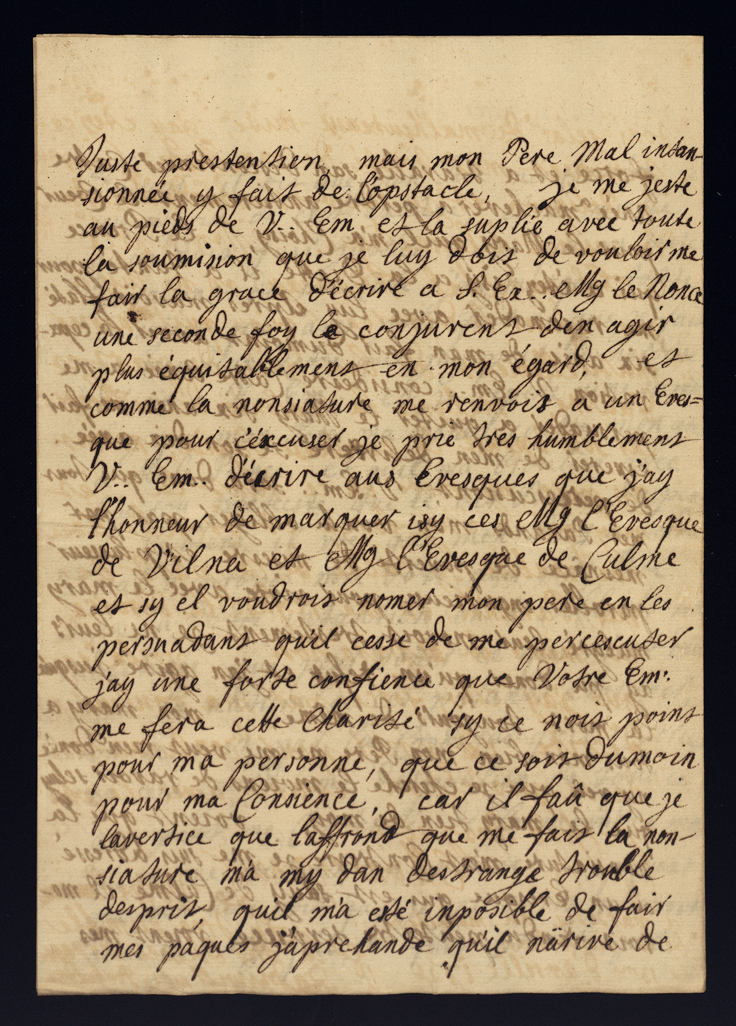 Juste prestention mais mon Pere Mal intan-
sionnée y fait de l'opstacle, je me jeste
au pieds de V.. Em et la suplie avec toute
la soumision que je luy dois de vouloir me
fair la grace d'écrire a S. Ex.. Mg le Nonce
une seconde foy le conjurent den agir
plus équitablement en mon égard, et
comme la nonsiature me renvois a un Eves=
que pour c'éxcuser je prie tres humblement
V.. Em.. d'écrire aus Evesques que j'ay
l'honneur de marquer isy ces Mg l'Evesque
de Vilna et Mg l'Evesque de Culme
et sy el voudrois nomer mon pere en les
persuadant qu'il cesse de me percescuter
j'ay une forte confience que Votre Em:
me fera cette Charité sy ce nois point
pour ma personne, que ce soit dumoin
pour ma Consience, car il faû que je
lavertice que laffrond que me fait la non-
siature m'a my dan destrange trouble
desprit, quil m'a esté inposible de fair
mes paques j'aprehande qu'il närive de